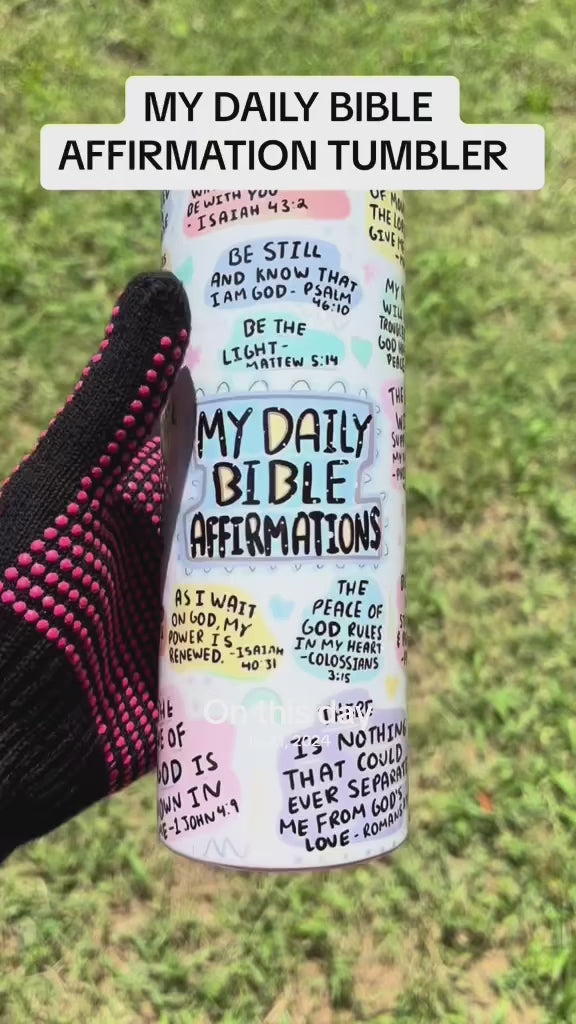 MY DAILY BIBLE
AFFIRMATION TUMBLER
BE WITH YOU
- ISAIAH 43:2
BE STILL
AND KNOW THAT
I AM GOD - PSALM
46:10
BE THE
LIGHT -
MATTEW 5:14
OF
THE
GIVE
MY
GOD
THE
MY DAILY
BIBLE
AFFIRMATIONS
AS I WAIT
ON GOD, MY
POWER IS
RENEWED. -ISAIAH
40:31
THE
PEACE OF
GOD RULES
IN MY HEART
-COLOSSIANS
3:15
On this day
2024
OF
IS
IN
-1 JOHN 4:9
IS NOTHING
THAT COULD
EVER SEPARATE
ME FROM GOD'S
LOVE - ROMANS